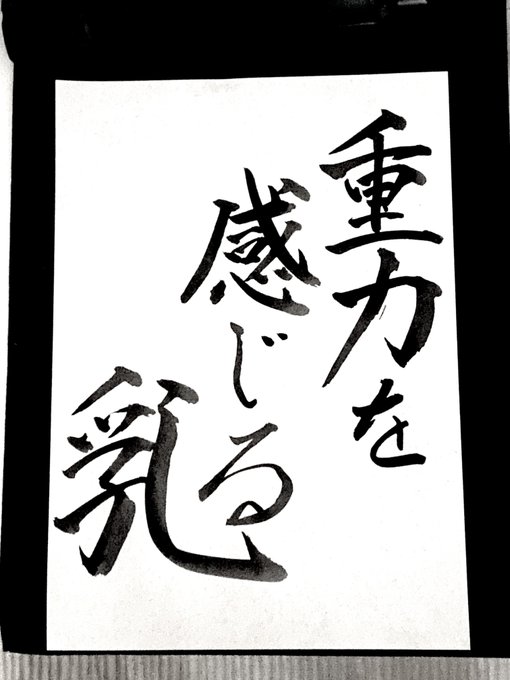 重力を
感じる
乳